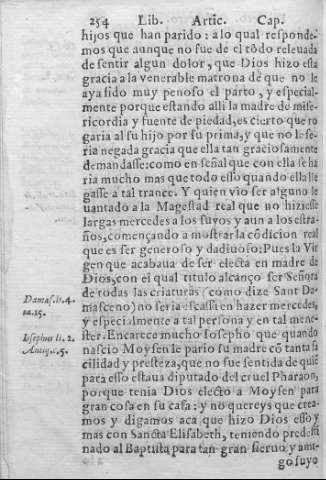 254 Lib. Artic. Cap.
hijos que han parido: a lo qual responde-
mos que aunque no fue de el tõdo releuada
de sentir algun dolor, que Dios hizo esta
gracia a la venerable matrona dẽ que no le
aya sido muy penoso el parto, y especial-
mente porque estando alli la madre de mise-
ricordia y fuente de piedad, es cierto que ro
garia al su hijo por su prima, y que no le se-
ria negada gracia que ella tan graciosamente
demandasse: como en señal que con ella se ha
ria mucho mas que todo esso quando ella lle
gasse a tal trance. Y quien vio ser alguno le
uantado a la Magestad real que no hiziesse
largas mercedes a los suyos y aun a los estra-
ños, començando a mostrar la cõdicion real
que es ser generoso y dadiuoso: Pues la Vir
gen que acabaua de ser electa en madre de
Dios, con el qual titulo alcanço ser Señora
de todas las criaturas (como dize Sant Da-
masceno) no seria escassa en hazer mercedes,
y especialmente a tal persona y en tal mene-
ster. Encarece mucho Iosepho que quando
nascio Moysen le pario su madre cõ tanta fa
cilidad y presteza, que no fue sentida de quiẽ
para esso estaua diputado del cruel Pharaon,
porque tenia Dios electo a Moysen para
gran cosa en su casa: y no quereys que crea-
mos y digamos aca que hizo Dios esso y
mas con Sancta Elisabeth, teniendo predesti
nado al Baptista para tan gran sieruo y ami-
go suyo
Damas. li. 4.
ca. 15.
Iosephus li. 2.
Antiq. c. 5.